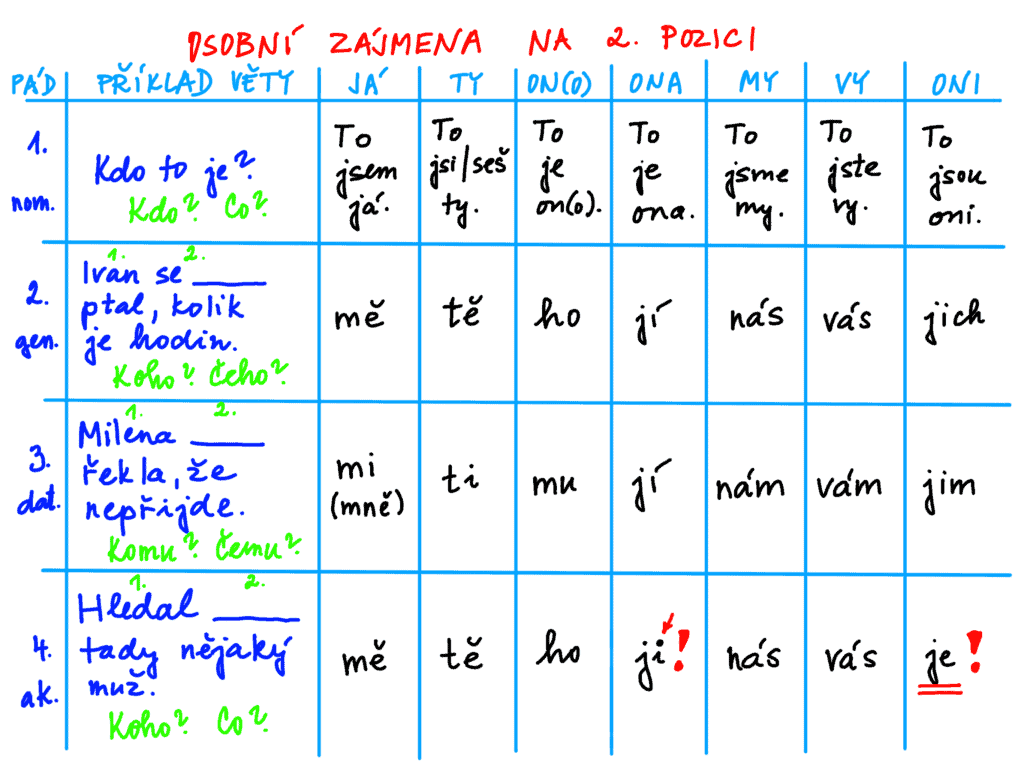 OSOBNÍ ZÁJMENA NA 2. POZICI
PÁD PŘÍKLAD VĚTY JÁ TY ON(O) ONA MY VY ONI
1.
nom.
Kdo to je?
Kdo? Co?
To jsem já.
To jsi/seš ty.
To je on(o).
To je ona.
To jsme my.
To jste vy.
To jsou oni.
2.
gen.
1. 2.
Ivan se ______
ptal, kolik
je hodin.
Koho? Čeho?
mě tě ho jí nás vás jich
3.
dat.
1. 2.
Milena ______
řekla, že
nepřijde.
Komu? Čemu?
mi
(mně)
ti mu jí nám vám jim
4.
ak.
1. 2.
Hledal ______
tady nějaký
muž.
Koho? Co?
mě tě ho ji! nás vás je!